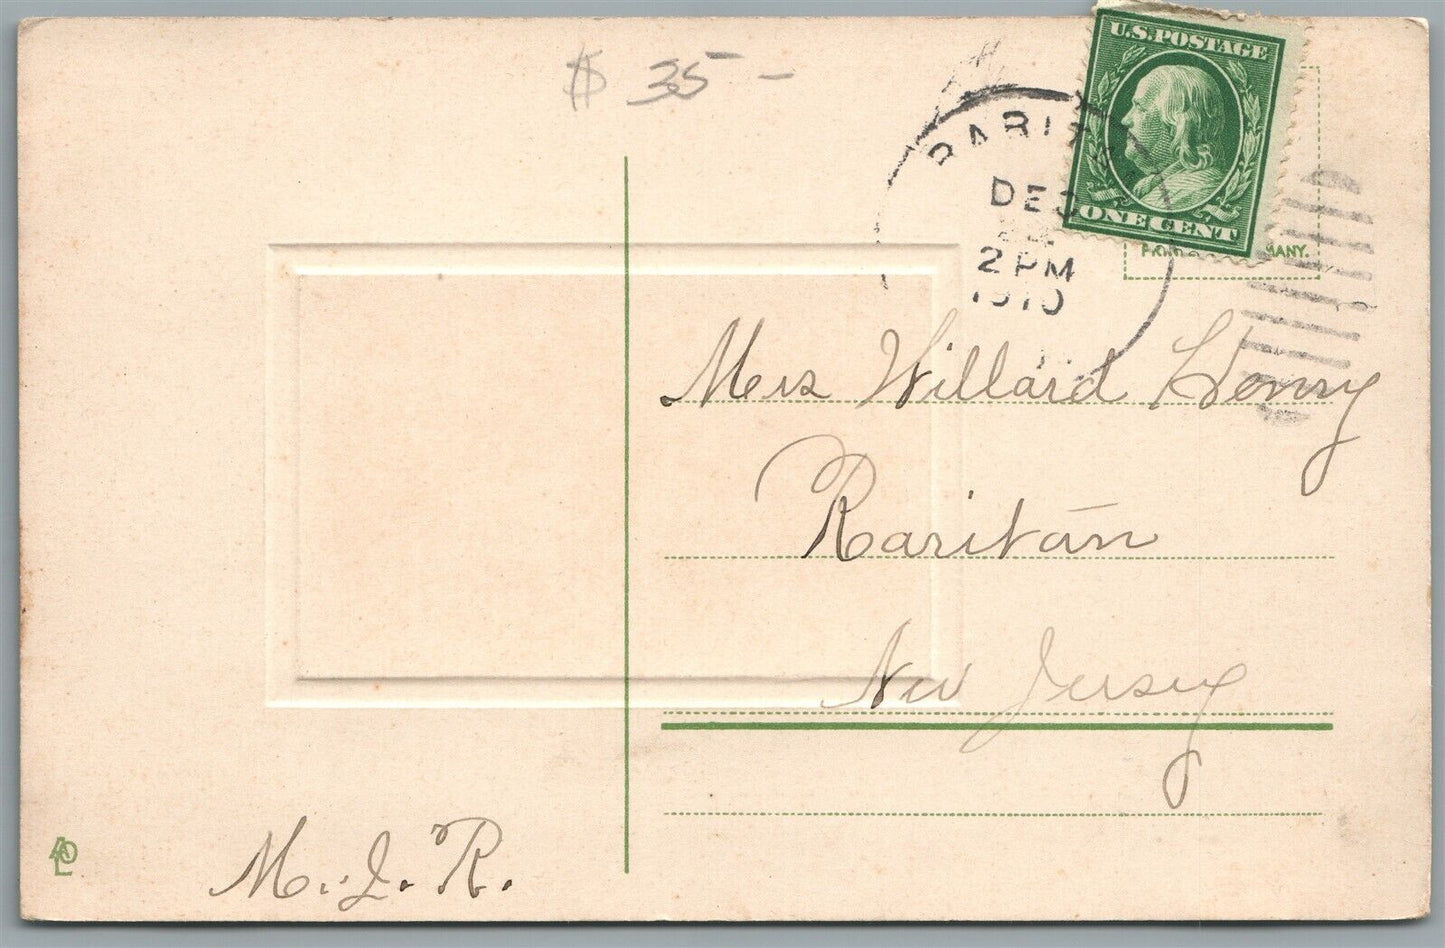 $ 35 -
U.S. POSTAGE
ONE CENT
RARITA
DEC
2 PM
1910
ANY.
Mrs Willard Henry
Raritan
New Jersey
M. J. R.